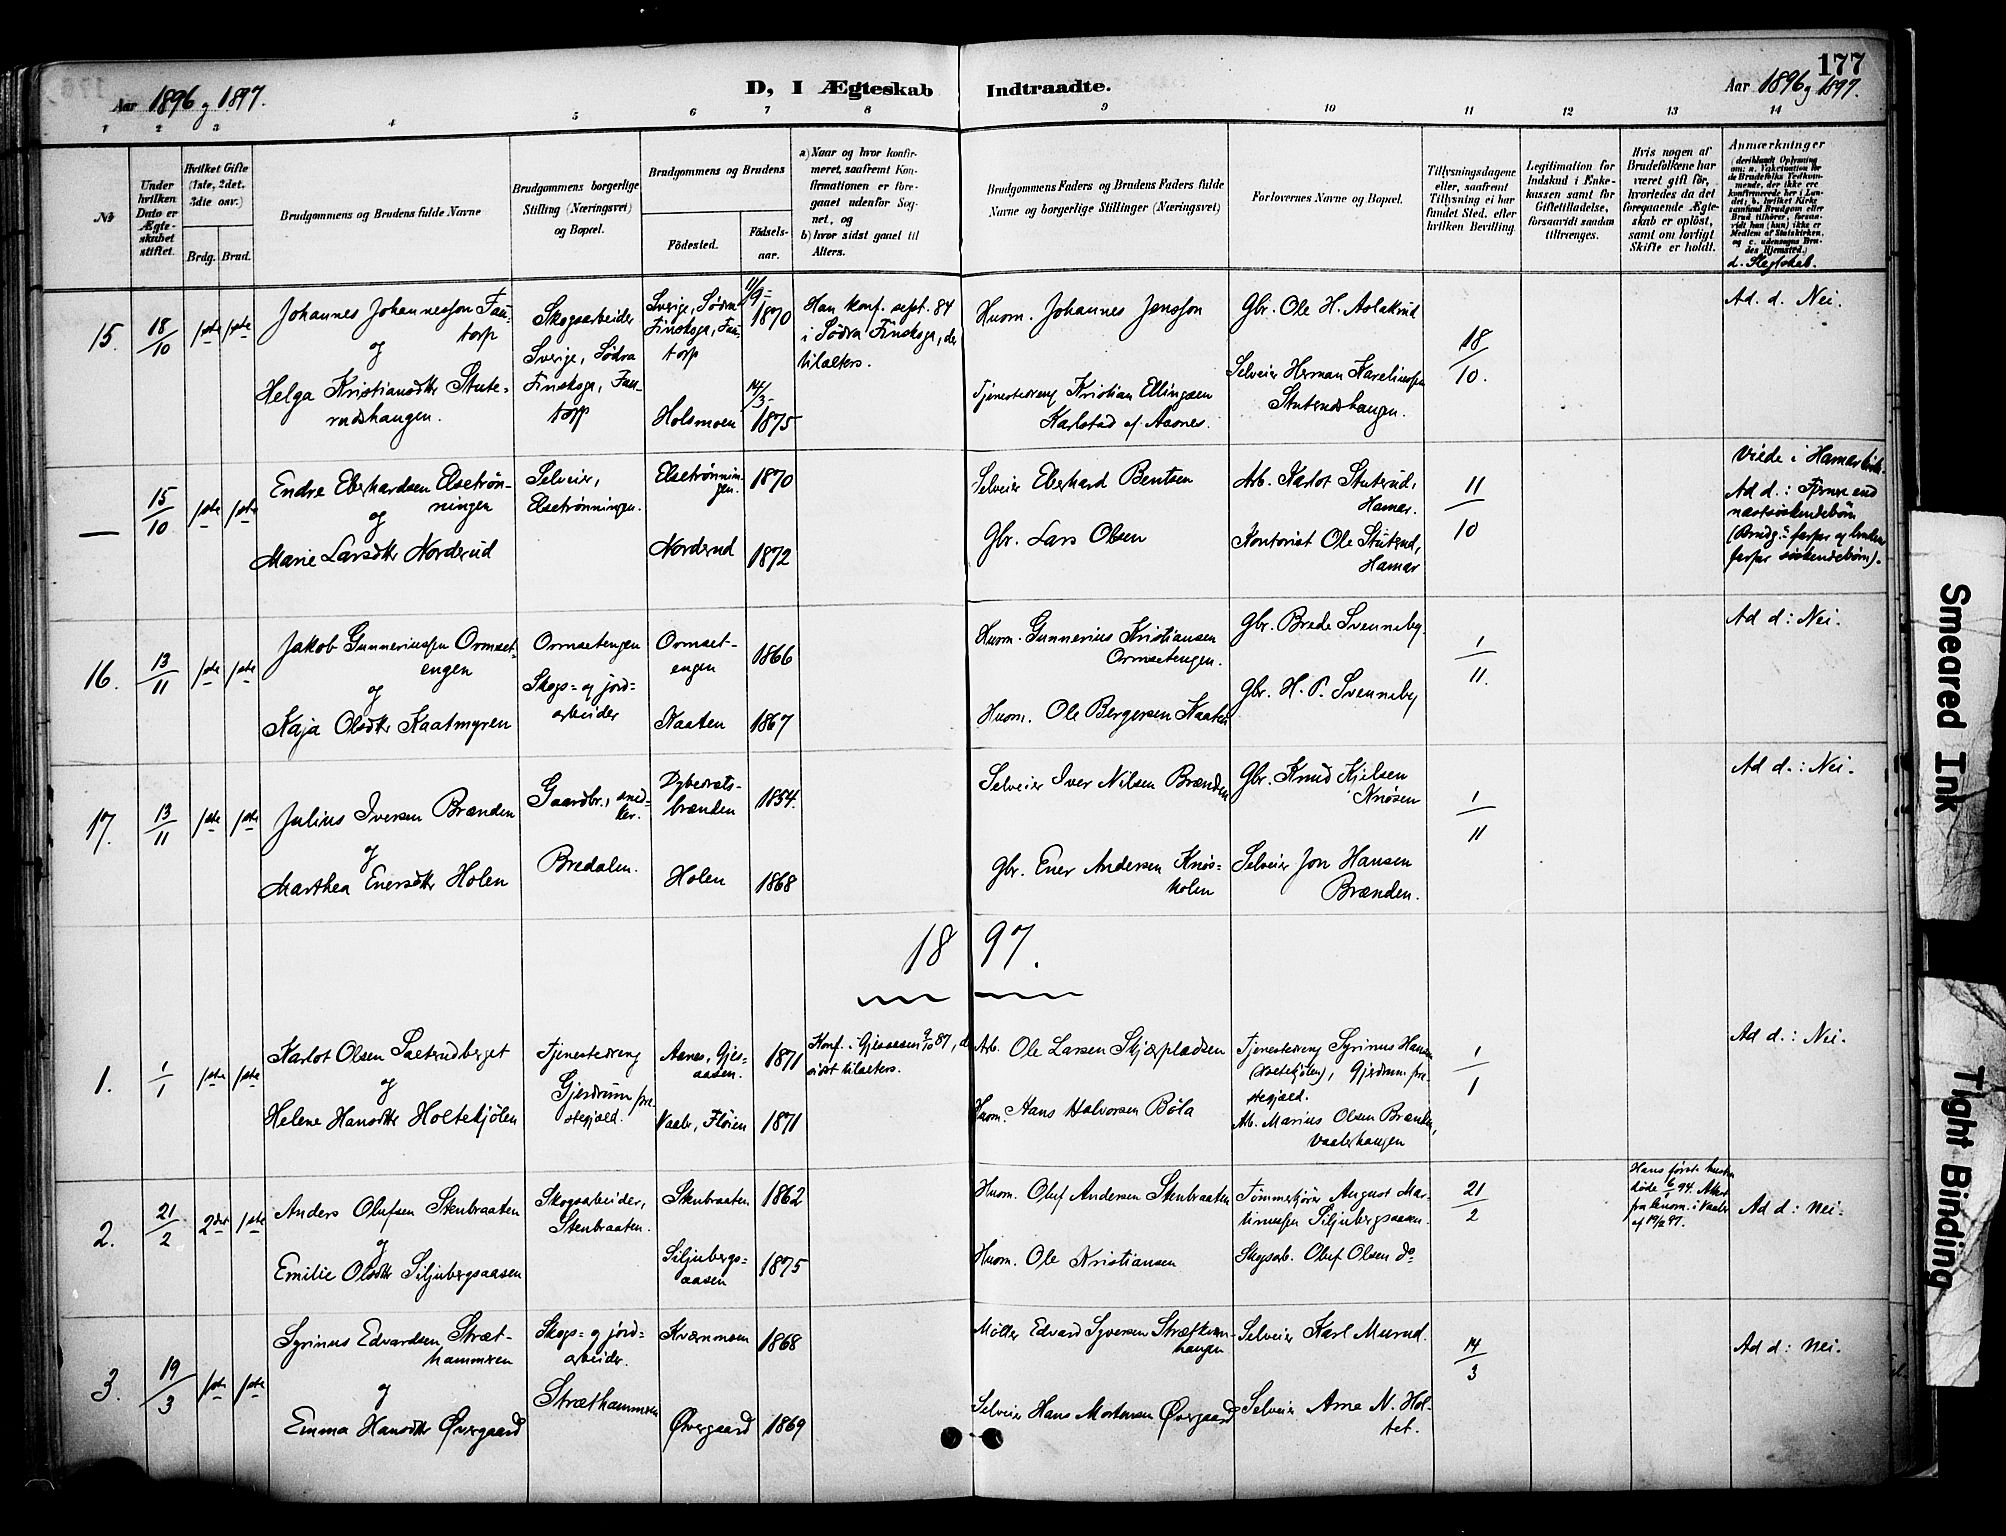 177
Aar 1896 og 1897.
D, I Ægteskab Indtraadte.
Aar 1896 og 1897.
1 2 3 4 5 6 7 8 9 10 11 12 13 14
№
Under hvilken Dato er Ægteskabet stiftet.
Hvilket Gifte (1ste, 2det, 3die osv.)
Brdg. Brud.
Brudgommens og Brudens fulde Navne
Brudgommens borgerlige Stilling (Næringsvei) og Bopæl.
Brudgommens og Brudens
Födested.
Födsels-aar.
a) Naar og hvor konfirmeret, saafremt Konfirmationen er foregaaet udenfor Sognet, og
b) hvor sidst gaaet til Alters.
Brudgommens Faders og Brudens Faders fulde Navne og borgerlige Stillinger (Næringsvei)
Forlovernes Navne og Bopæl.
Tillysningsdagene eller, saafremt Tillysning ei har fundet Sted, efter hvilken Bevilling.
Legitimation for Indskud i Enkekassen samt for Giftetilladelse, forsaavidt saadan tiltrænges.
Hvis nogen af Brudefolkene har været gift för, hvorledes da det foregaaende Ægteskab er oplöst, samt om lovligt Skifte er holdt.
Anmærkninger
d. Slegtskab.
15. 18/10 1ste 1ste
Johannes Johannesson Fautorp
og
Helga Kristiansdtr Stuterudshaugen.
Skogsarbeider
Sverige, Södra Finskoga, Fautorp
Sverige, Södra Finskoga, Fautorp
11/9 1870
Holsmoen
14/3 1875
Han konf. sept. 84 i Södra Finskoga, der tilalters.
Husm. Johannes Jonsson
Tjenestedreng Kristian Ellingsen Karlstad af Aasnes.
Gbr. Ole H. Aslakrud
Selveier Herman Kareliussen Stuterudshaugen.
18/10.
Ad. d. Nei.
— 15/10 1ste 1ste
Endre Eberhardsen Elsetrønningen
og
Marie Larsdtr Norderud
Selveier, Elsetrønningen.
Elsetrønningen. 1870
Norderud 1872
Selveier Eberhard Bentsen
Gbr. Lars Olsen
Arb. Karlot Stuterud, Hamar.
Kontorist Ole Stuterud, Hamar
11/10
Viede i Hamar kirk.
Ad d.: Fjernere end næstsöskendebörn
(Brudg.s farfar og brudens farfar söskendebörn).
16. 13/11 1ste 1ste
Jakob Gunneriussen Ormsetengen
og
Kaja Olsdtr Kaatmyren
Ormsetengen
Skogs- og jordarbeider
Ormsetengen 1866
Kaaten 1867
Husm. Gunnerius Kristiansen Ormsetengen.
Husm. Ole Bergersen Kaaten
Gbr. Brede Svenneby.
Gbr. H. P. Svenneby
1/11.
Ad d: Nei.
17. 13/11 1ste 1ste
Julius Iversen Brænden
og
Marthea Enersdtr Holen
Gaardbr., snedker.
Bredalen.
Dybedalsbrænden 1854.
Holen 1868
Selveier Iver Nilsen Brænden
Gbr. Ener Andersen Knösholen
Gbr. Knud Kjelsen Knösen
Selveier Jon Hansen Brænden.
1/11
Ad d.: Nei.
18 97.
1. 1/1 1ste 1ste
Karlot Olsen Sæterudberget
og
Helene Hansdtr Holtekjölen
Tjenestedreng
Gjerdrum prestegjæld.
Aasnes, Gjesaasen. 1871
Vaaler, Flöien 1871
Konf. i Gjesaasen 9/10 87, d. sidst tilalters.
Arb. Ole Larsen Skjærpladsen
Husm. Hans Halvorsen Böla
Tjenestedreng Syrinus Hansen (Holtekjölen), Gjerdrum prestegjæld.
Arb. Marius Olsen Brænden, Vaalerhaugen
1/1
Ad d.: Nei.
2. 21/2 2det 1ste
Anders Olufsen Stenbraaten
og
Emilie Olsdtr Siljubergsaasen
Skogsarbeider, Stenbraaten.
Stenbraaten 1862
Siljubergsaasen 1875
Husm. Oluf Andersen Stenbraaten
Husm. Ole Kristiansen
Tömmerkjörer August Martinussen Siljubergsaasen.
Skogsarb. Oluf Olsen do
21/2
Hans förste hustru döde 94. Attest fra lensm. i Vaaler af 19/2 97.
Ad d: nei.
3. 19/3 1ste 1ste
Syrinus Edvardsen Stræthammren
og
Emma Hansdtr Øvergaard
Skogs- og jordarbeider.
Stræthammren
Kværnmoen 1868
Øvergaard 1869
Möller Edvard Syversen Strætkværnhaugen
Selveier Hans Mortensen Øvergaard
Selveier Karl Murud.
Selveier Arne N. Holtet.
14/3
Ad d: nei.
Smeared Ink
Tight Binding